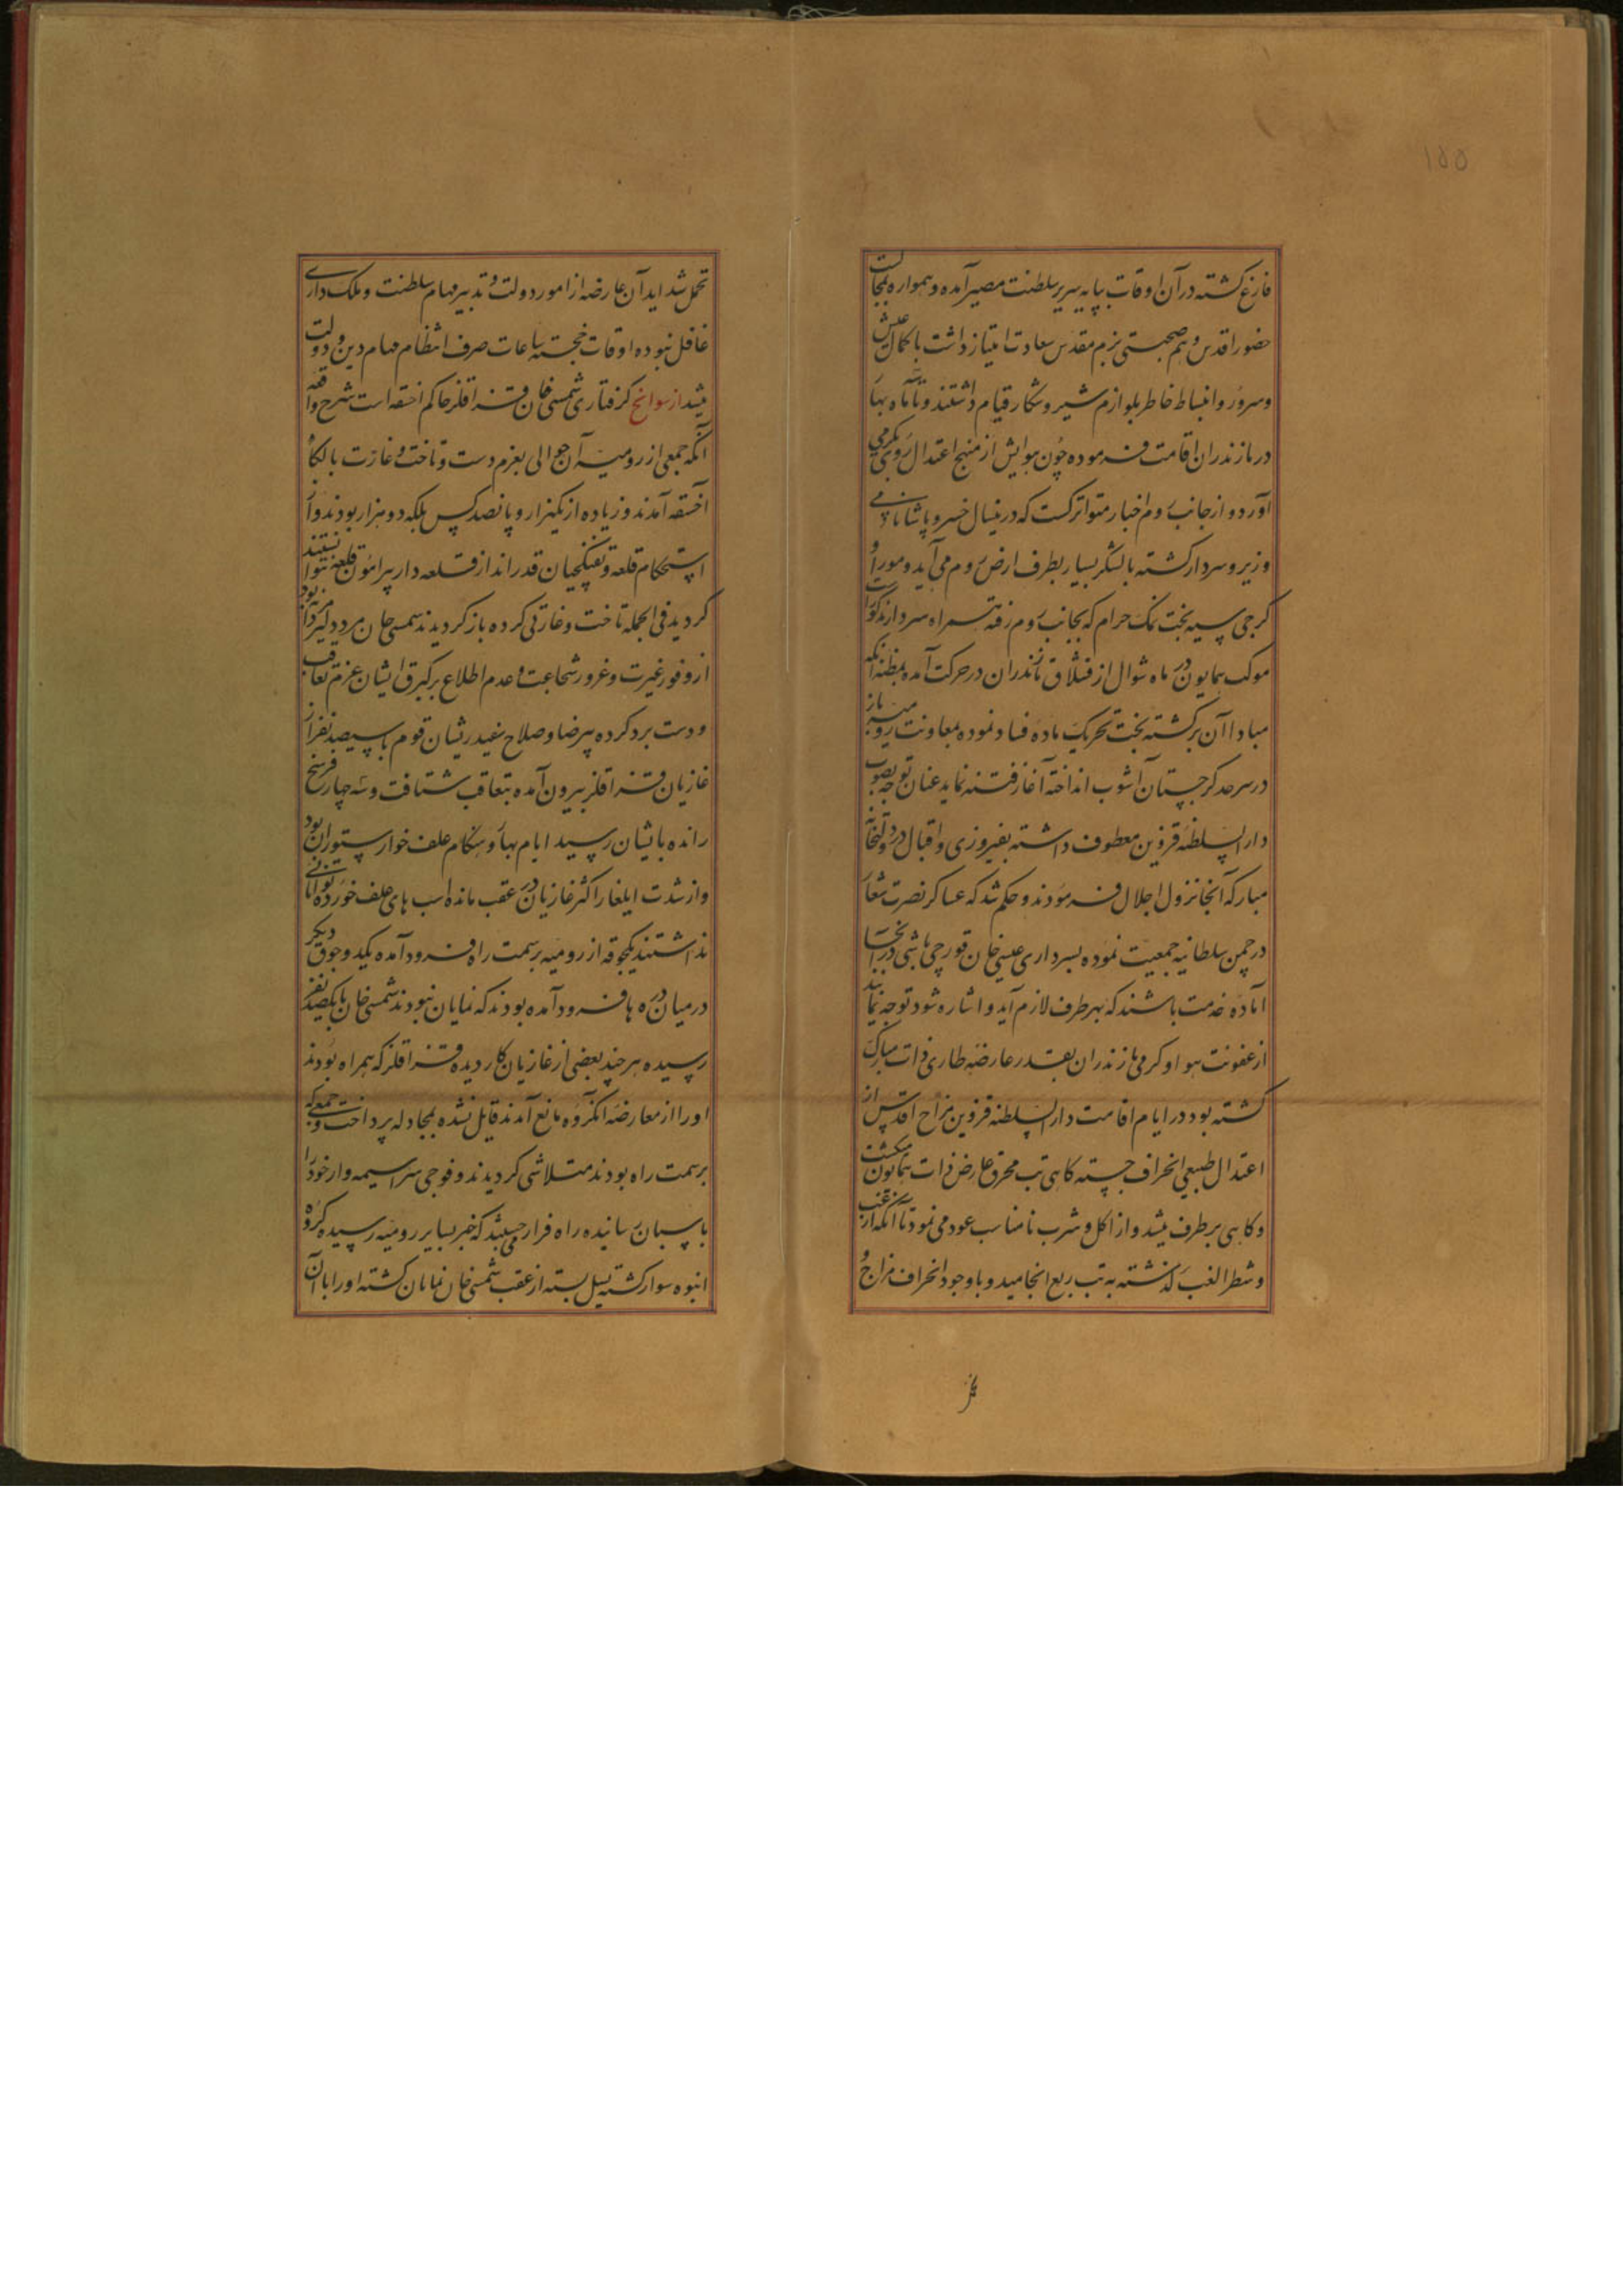 ۱۵۵
فارغ گشته در آن اوقات بپایه سریر سلطنت مصیر آمده و همواره بمجالست
حضور اقدس و هم صحبتی بزم مقدس سعادت امتیاز داشت با کمال عیش
و سرور و انبساط خاطر بلوازم سیر و شکار قیام داشتند و تا سه ماه بهار
در مازندران اقامت فرموده چون هوایش از منهج اعتدال روی بگرمی
آورد و از جانب روم اخبار متواتر گشت که درینسال خسرو پاشا نامی
وزیر و سردار گشته با لشکر بسیار بطرف ارض روم می آید و موراو
کرجی سیه بخت نمک حرام که بجانب روم رفته همراه سردار مذکور است
موکب همایون در ماه شوال از قشلاق مازندران در حرکت آمده بمظنه آنکه
مبادا آن برگشته بخت تحریک ماده فساد نموده بمعاونت رومیه باز
در سرحد کرجستان آشوب انداخته آغاز فتنه نماید عنان توجه بصوب
دار السلطنه قزوین معطوف داشته بفیروزی و اقبال در دولتخانه
مبارکه آنجا نزول اجلال فرمودند و حکم شد که عساکر نصرت شعار
در چمن سلطانیه جمعیت نموده بسرداری عیسی خان قورچی باشی در آنجا
آماده خدمت باشند که بهر طرف لازم آید و اشاره شود توجه نمایند
از عفونت هوا و کرمی مازندران بقدر عارضه طاری ذات مبارک
گشته بود در ایام اقامت دار السلطنه قزوین مزاج اقدس از
اعتدال طبیعی انحراف جسته کاهی تب محرق عارض ذات همایون میکشت
و کاهی بر طرف میشد و از اکل و شرب نامناسب عود می نمود تا آنکه از غب
و شطر الغب گذشته به تب ربع انجامید و با وجود انحراف مزاج و
تحمل شداید آن عارضه از امور دولت و تدبیر مهام سلطنت و ملک داری
غافل نبوده اوقات خجسته ساعات صرف انتظام مهام دین و دولت
میشد از سوانح گرفتاری شمسی خان قزاقلر حاکم اخسقه است شرح واقعه
آنکه جمعی از رومیه آن حوالی بعزم دست و تاخت و غارت بالکاء
آخسقه آمدند و زیاده از یکهزار و پانصد کس بلکه دو هزار بودند و از
استحکام قلعه و تفنکچیان قدر انداز قلعه دار پیرامون قلعه نتوانستند
کردید فی الجمله تاخت و غارتی کرده باز کردیدند شمسی خان مرد دلیر مردانه بود
از وفور غیرت و غرور شجاعت و عدم اطلاع بر کیرق ایشان بعزم تعاقب
و دست برد کرده بیرضا و صلاح سفید ریشان قوم با سیصد نفر از
غازیان قزاقلر بیرون آمده بتعاقب شتافت و سه چهار فرسخ
رانده بایشان رسید ایام بهار و هنگام علف خوار ستوران بود
و از شدت ایلغار اکثر غازیان در عقب مانده اسب های علف خورده توانائی
نداشتند یکجوقه از رومیه بر سمت راه فرود آمده یکدو جوق دیکر
در میان دره ها فرود آمده بودند که نمایان نبودند شمسی خان با یکصد نفر
رسیده هر چند بعضی از غازیان کار دیده قزاقلر که همراه بودند
او را از معارضه انکروه مانع آمدند قایل نشده بمجادله پرداخت و جمعی که
بر سمت راه بودند متلاشی کردیدند و فوجی سراسیمه وار خود را
باسبان رسانیده راه فرار می جستند که خبر بسایر رومیه رسیده گروه
انبوه سوار گشته یسل بسته از عقب شمسی خان نمایان گشته او را با آن